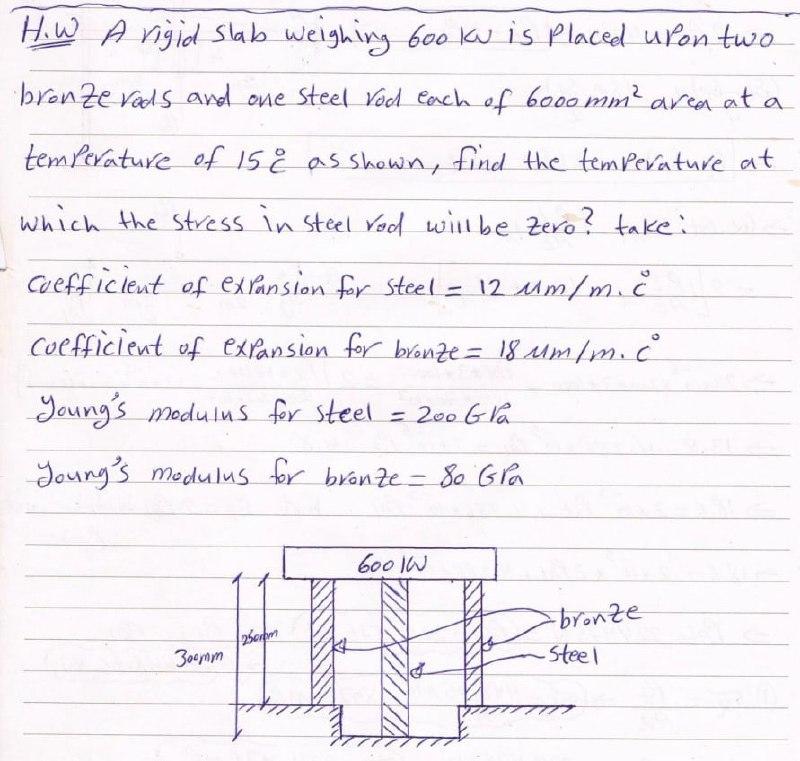 H.W A rigid slab weighing 600 kN is placed upon two
bronze rods and one steel rod each of 6000 mm² area at a
temperature of 15 c° as shown, find the temperature at
which the stress in steel rod will be zero? take:
coefficient of expansion for steel = 12 µm/m.c°
coefficient of expansion for bronze = 18 µm/m.c°
Young's modulus for steel = 200 GPa
Young's modulus for bronze = 80 GPa
600 kN
bronze
250mm
300mm
steel